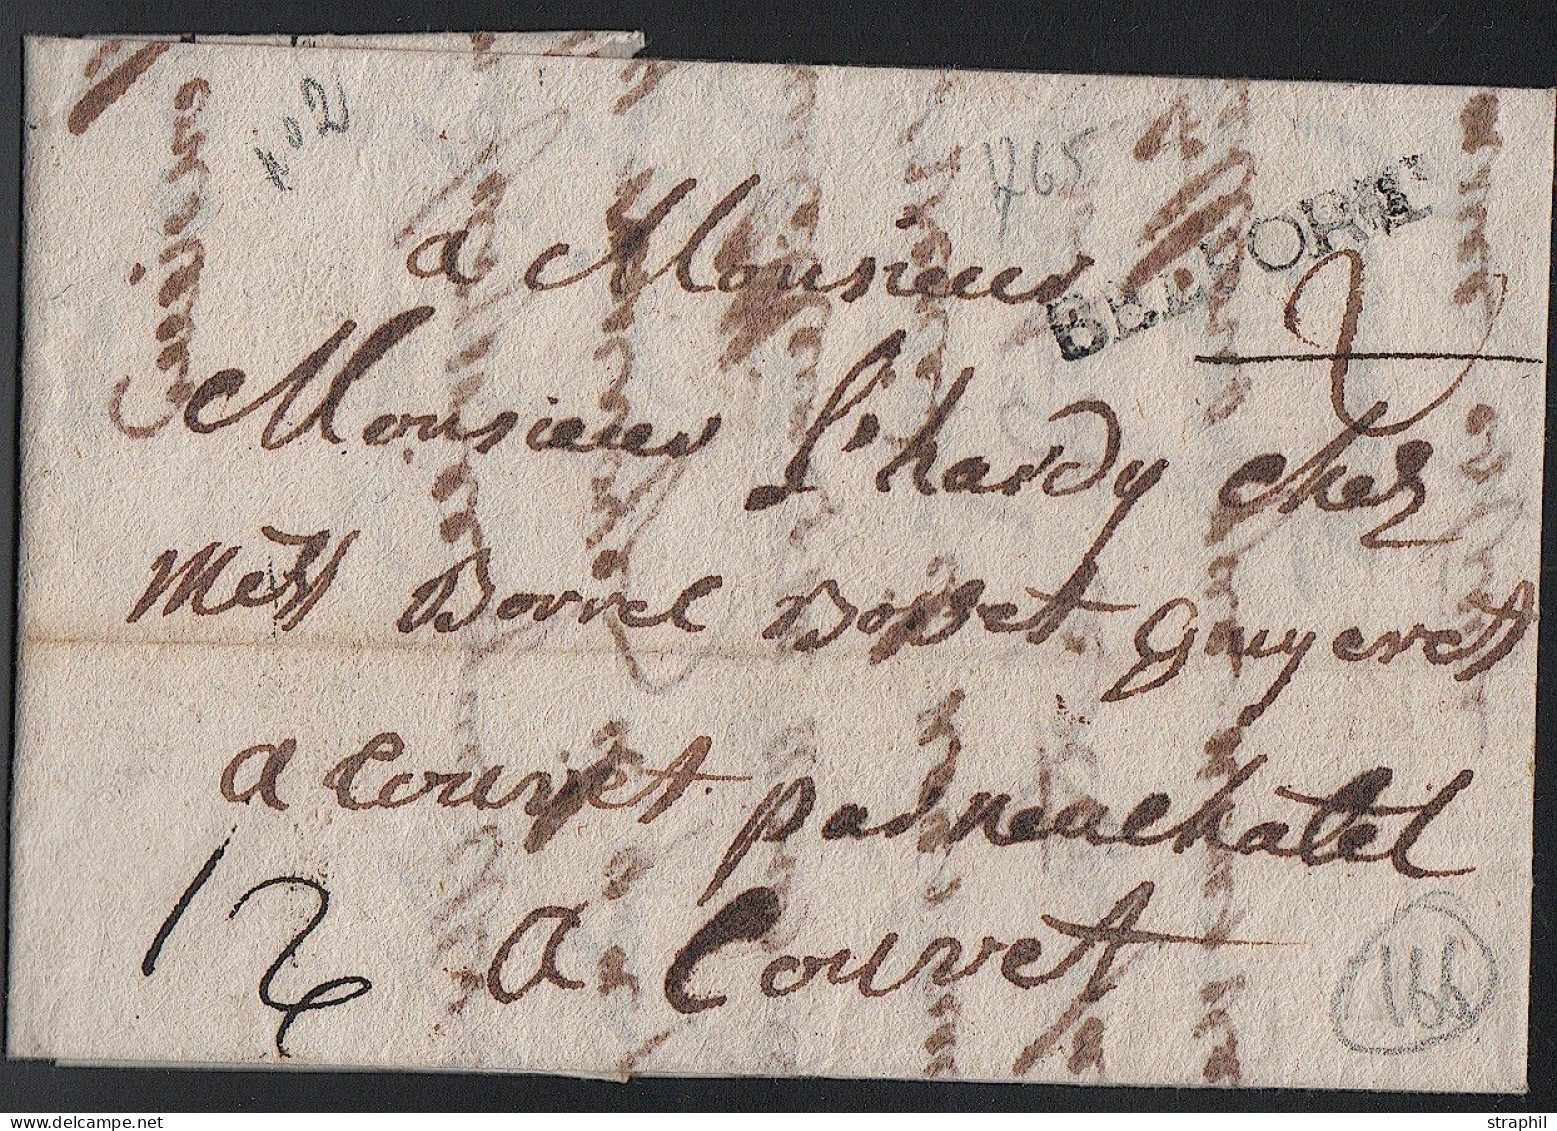 102
1765
BELFORT
a Monsieur
Monsieur L'hardy chez
Mess Borrel Bosset Guyenet
a Couvet par neuchatel
a Couvet
12
166
straphil